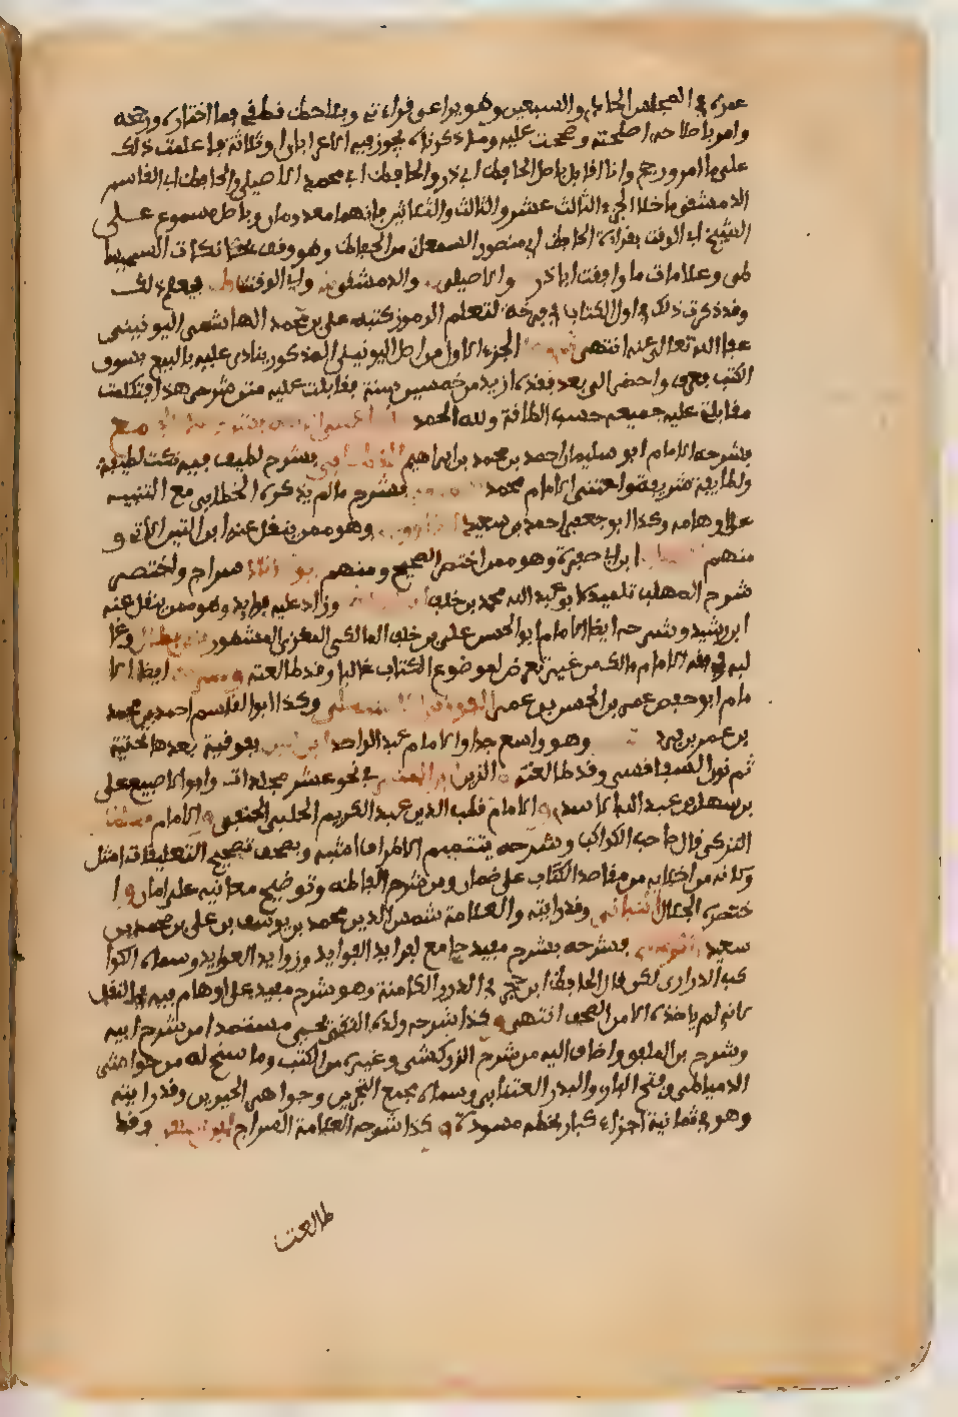 عمره في المجلس الحادي والسبعين وهو يراعي قراءتي ويلاحظ نطقي فما اختاره ورجحه
وامر باصلاحه اصلحته وصححت عليه وما ذكر انه يجوز فيه الاعرابان او ثلاثة فاعملت ذلك
على ما امر ورجح وانا اقابل باصل الحافظ ابي ذر والحافظ ابي محمد الاصيلي والحافظ ابي القاسم
الدمشقي ما خلا الجزء الثالث عشر والثالث والثلاثين فانهما معدومان وباصل مسموع على
الشيخ ابي الوقت بقراءة الحافظ ابي منصور السمعاني من الحفاظ وهو وقف بخانكاه السميسا
طي وعلامات ما وافقت ابا ذر والاصيلي والدمشقي وابا الوقت فيعلم ذلك
وقد ذكرت ذلك في اول الكتاب في فرخه لتعلم الرموز كتبه علي بن محمد الهاشمي اليونيني
عفا الله تعالى عنه انتهى الجزء الاول من اصل اليونيني المذكور ينادى عليه بالبيع بسوق
الكتب فعرف واحضر الي بعد فقده ازيد من خمسين سنة فقابلت عليه متن شرحي هذا فكملت
مقابلتي عليه جميعه حسب الطاقة ولله الحمد
بشرحه الامام ابو سليمان احمد بن محمد بن ابراهيم الخطابي بشرح لطيف فيه نكت لطيفة
ولطايف شريفة واعتنى الامام محمد بشرح ما لم يذكره الخطابي مع التنبيه
على اوهامه وكذا ابو جعفر احمد بن سعيد وهو ممن ينقل عنه ابن التين الاتي و
منهم ابن ابي صفرة وهو ممن اختصر الصحيح ومنهم ابو الزناد سراج واختصر
شرح المهلب تلميذه ابو عبد الله محمد بن خلف وزاد عليه فوايد وهو ممن ينقل عنه
ابن رشيد وشرحه ايضا الامام ابو الحسن علي بن خلف المالكي المغربي المشهور بابن بطال وغا
لبه في فقه الامام مالك من غير تعرض لموضوع الكتاب غالبا وقد طالعته ايضا الا
مام ابو حفص عمر بن الحسن بن عمر وكذا ابو القاسم احمد بن محمد
بن عمر بن وهو واسع جدا والامام عبد الواحد ابن التين بفوقية بعدها تحتية
ثم نون السفاقسي وقد طالعته والزين ابن المنير في نحو عشر مجلدات وابو الاصبع عيسى
بن سهل بن عبد الله الاسدي والامام قطب الدين عبد الكريم الحلبي الحنفي والامام مغلطاي
التركي قال صاحب الكواكب وشرحه بتتميم الاطراف اشبه وبصحف تصحيح التعليقات امثل
وكانه من اخلايه من مقاصد الكتاب على ضمان ومن شرح الفاظه وتوضيح معانيه على امان وا
ختصره الجلال التباني وقد رايته والعلامة شمس الدين محمد بن يوسف بن علي بن محمد بن
سعيد بشرحه بشرح مفيد جامع لفرايد الفوايد وزوايد العوايد وسماه الكوا
كب الدراري لكن قال الحافظ ابن حجر في الدرر الكامنة وهو شرح مفيد على اوهام فيه في النقل
لانه لم ياخذه الا من الصحف انتهى وكذا شرحه ولده التقي يحيى مستمدا من شرح ابيه
وشرح بن الملقن واضاف اليه من شرح الزركشي وغيره من الكتب وما سنح له من حواشي
الدمياطي وفتح الباري والبدر العنتابي وسماه مجمع البحرين وجواهر الحبرين وقد رايته
وهو في ثمانية اجزاء كبار بخطه مسودة وكذا شرحه العلامة السراج ابن الملقن وقد
طالعت